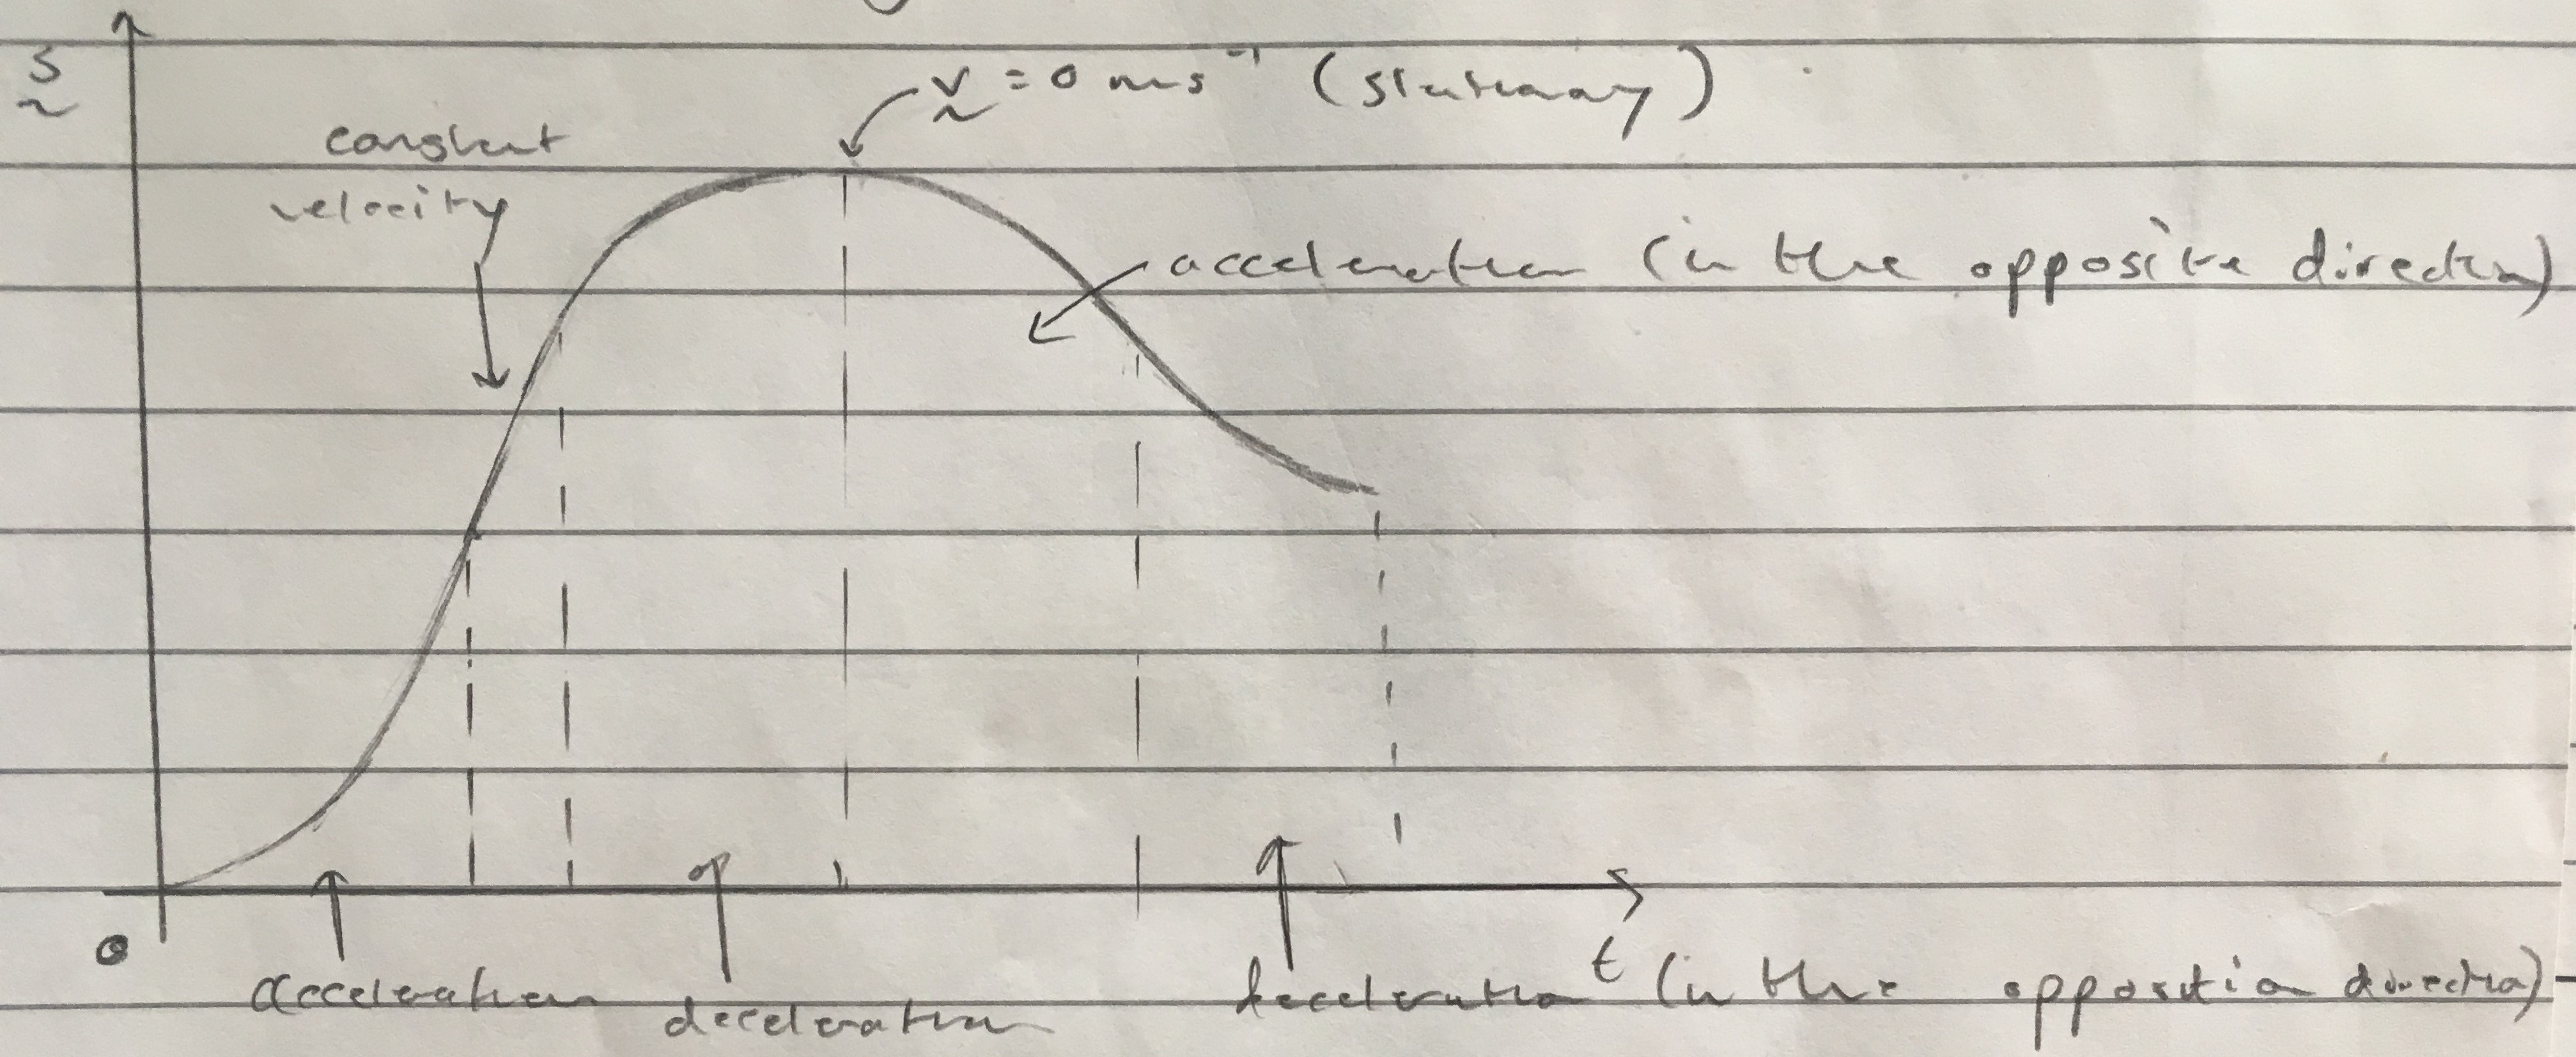 s
v = 0 ms⁻¹ (stationary)
constant
velocity
acceleration (in the opposite direction)
0
t
acceleration
deceleration
deceleration (in the opposition direction)